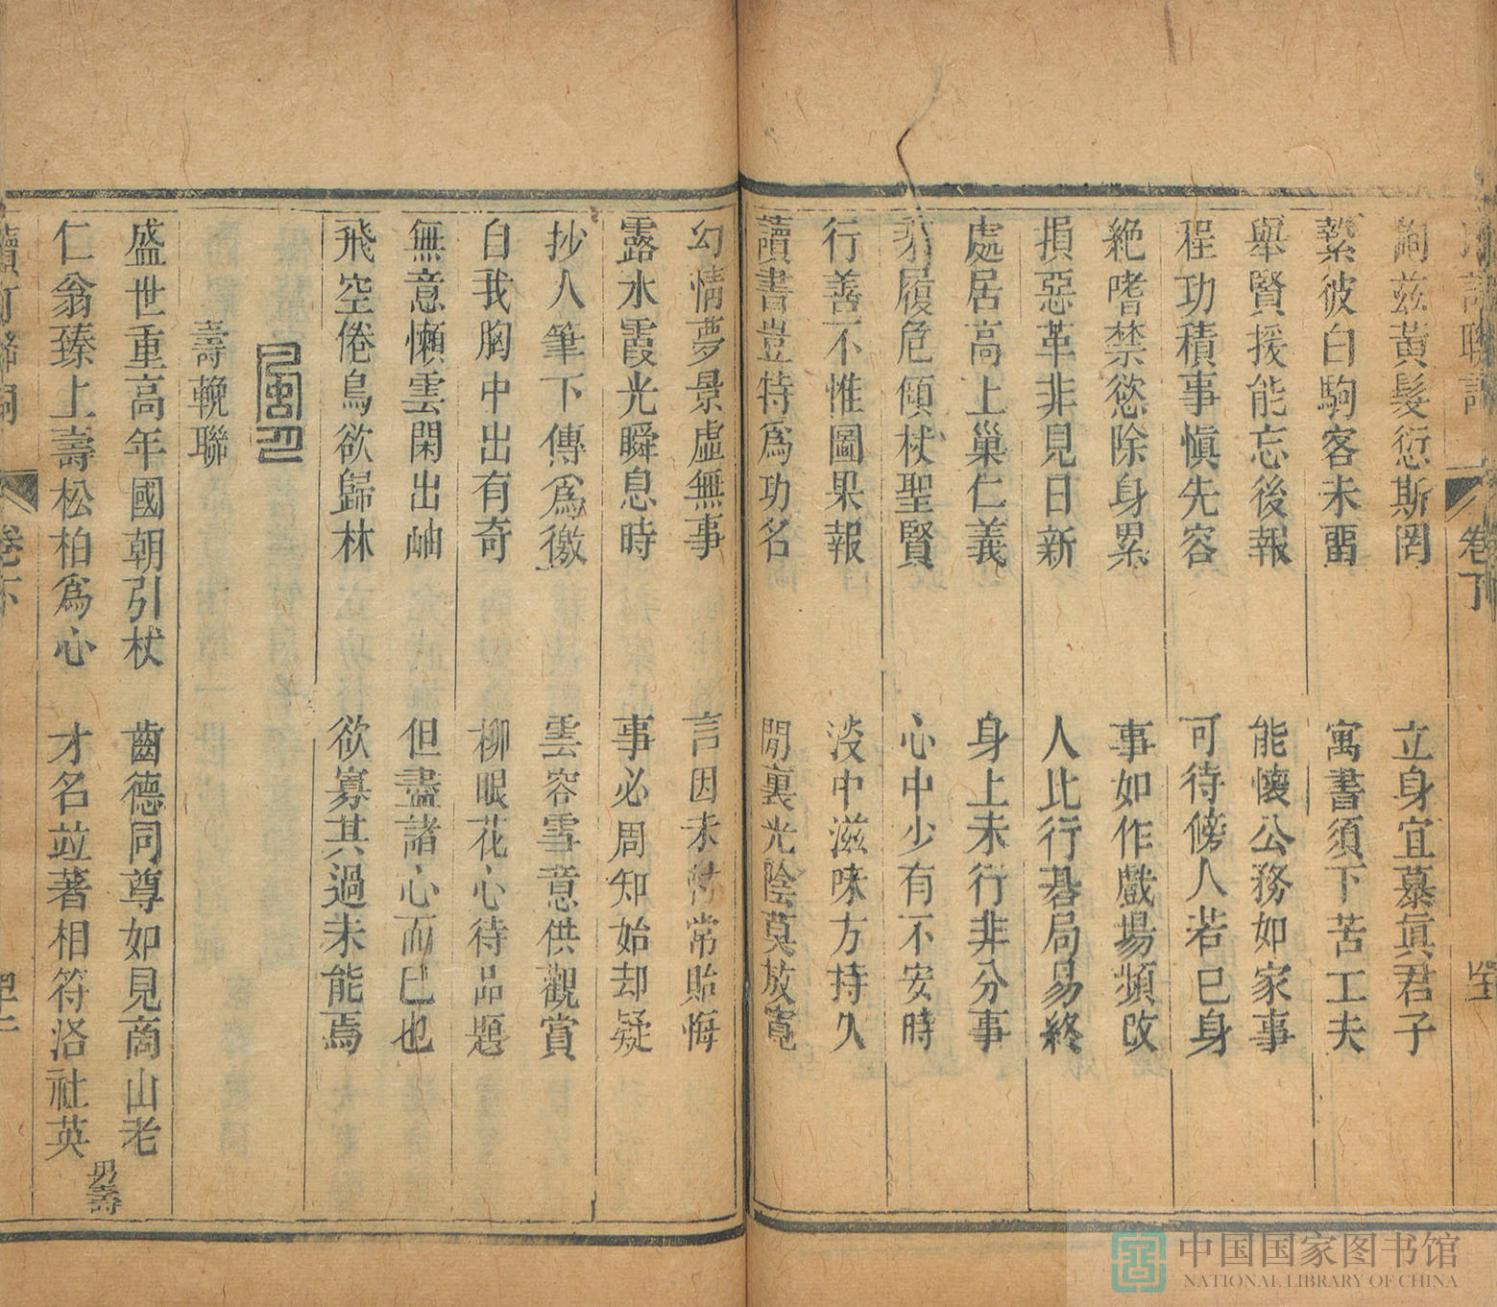 卷下
詢茲黃髮愆斯罔 立身宜慕眞君子
縶彼白駒客未畱 寓書須下苦工夫
舉賢援能忘後報 能懷公務如家事
程功積事愼先容 可待傍人若巳身
絶嗜禁慾除身累 事如作戲場頻改
損惡革非見日新 人比行碁局易終
處居高上巢仁義 身上未行非分事
履危傾杖聖賢 心中少有不安時
行善不惟圖果報 淡中滋味方持久
讀書豈特爲功名 閒裏光陰莫放寬
幻情夢景虛無事 言因未 常貽悔
露水霞光瞬息時 事必周知始却疑
抄人筆下傳爲徼 雲容雪意供觀賞
自我胸中出有奇 柳眼花心待品題
無意懶雲閑出岫 但盡諸心而已也
飛空倦鳥欲歸林 欲寡其過未能焉
壽輓聯
盛世重高年國朝引杖 齒德同尊如見商山老
仁翁臻上壽松柏爲心 才名竝著相符洛社英
男壽
卷下
中国国家图书馆
NATIONAL LIBRARY OF CHINA